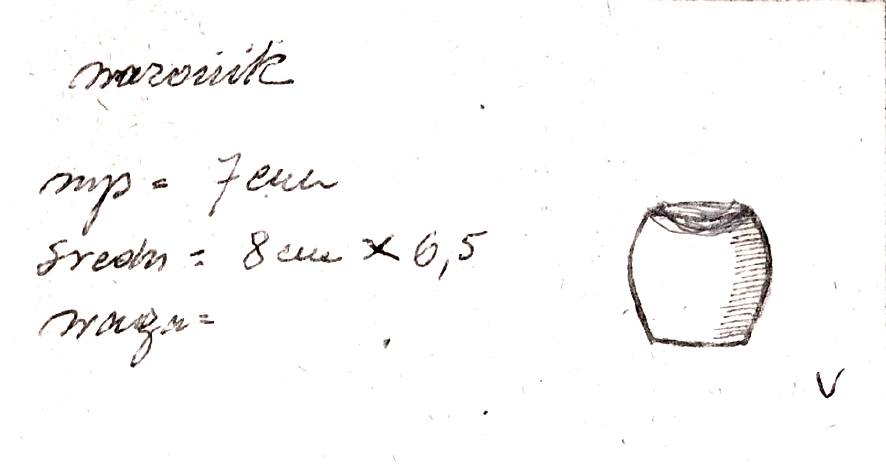 wazonik
wys = 7 cm
średn = 8 cm x 6,5
waga =
V